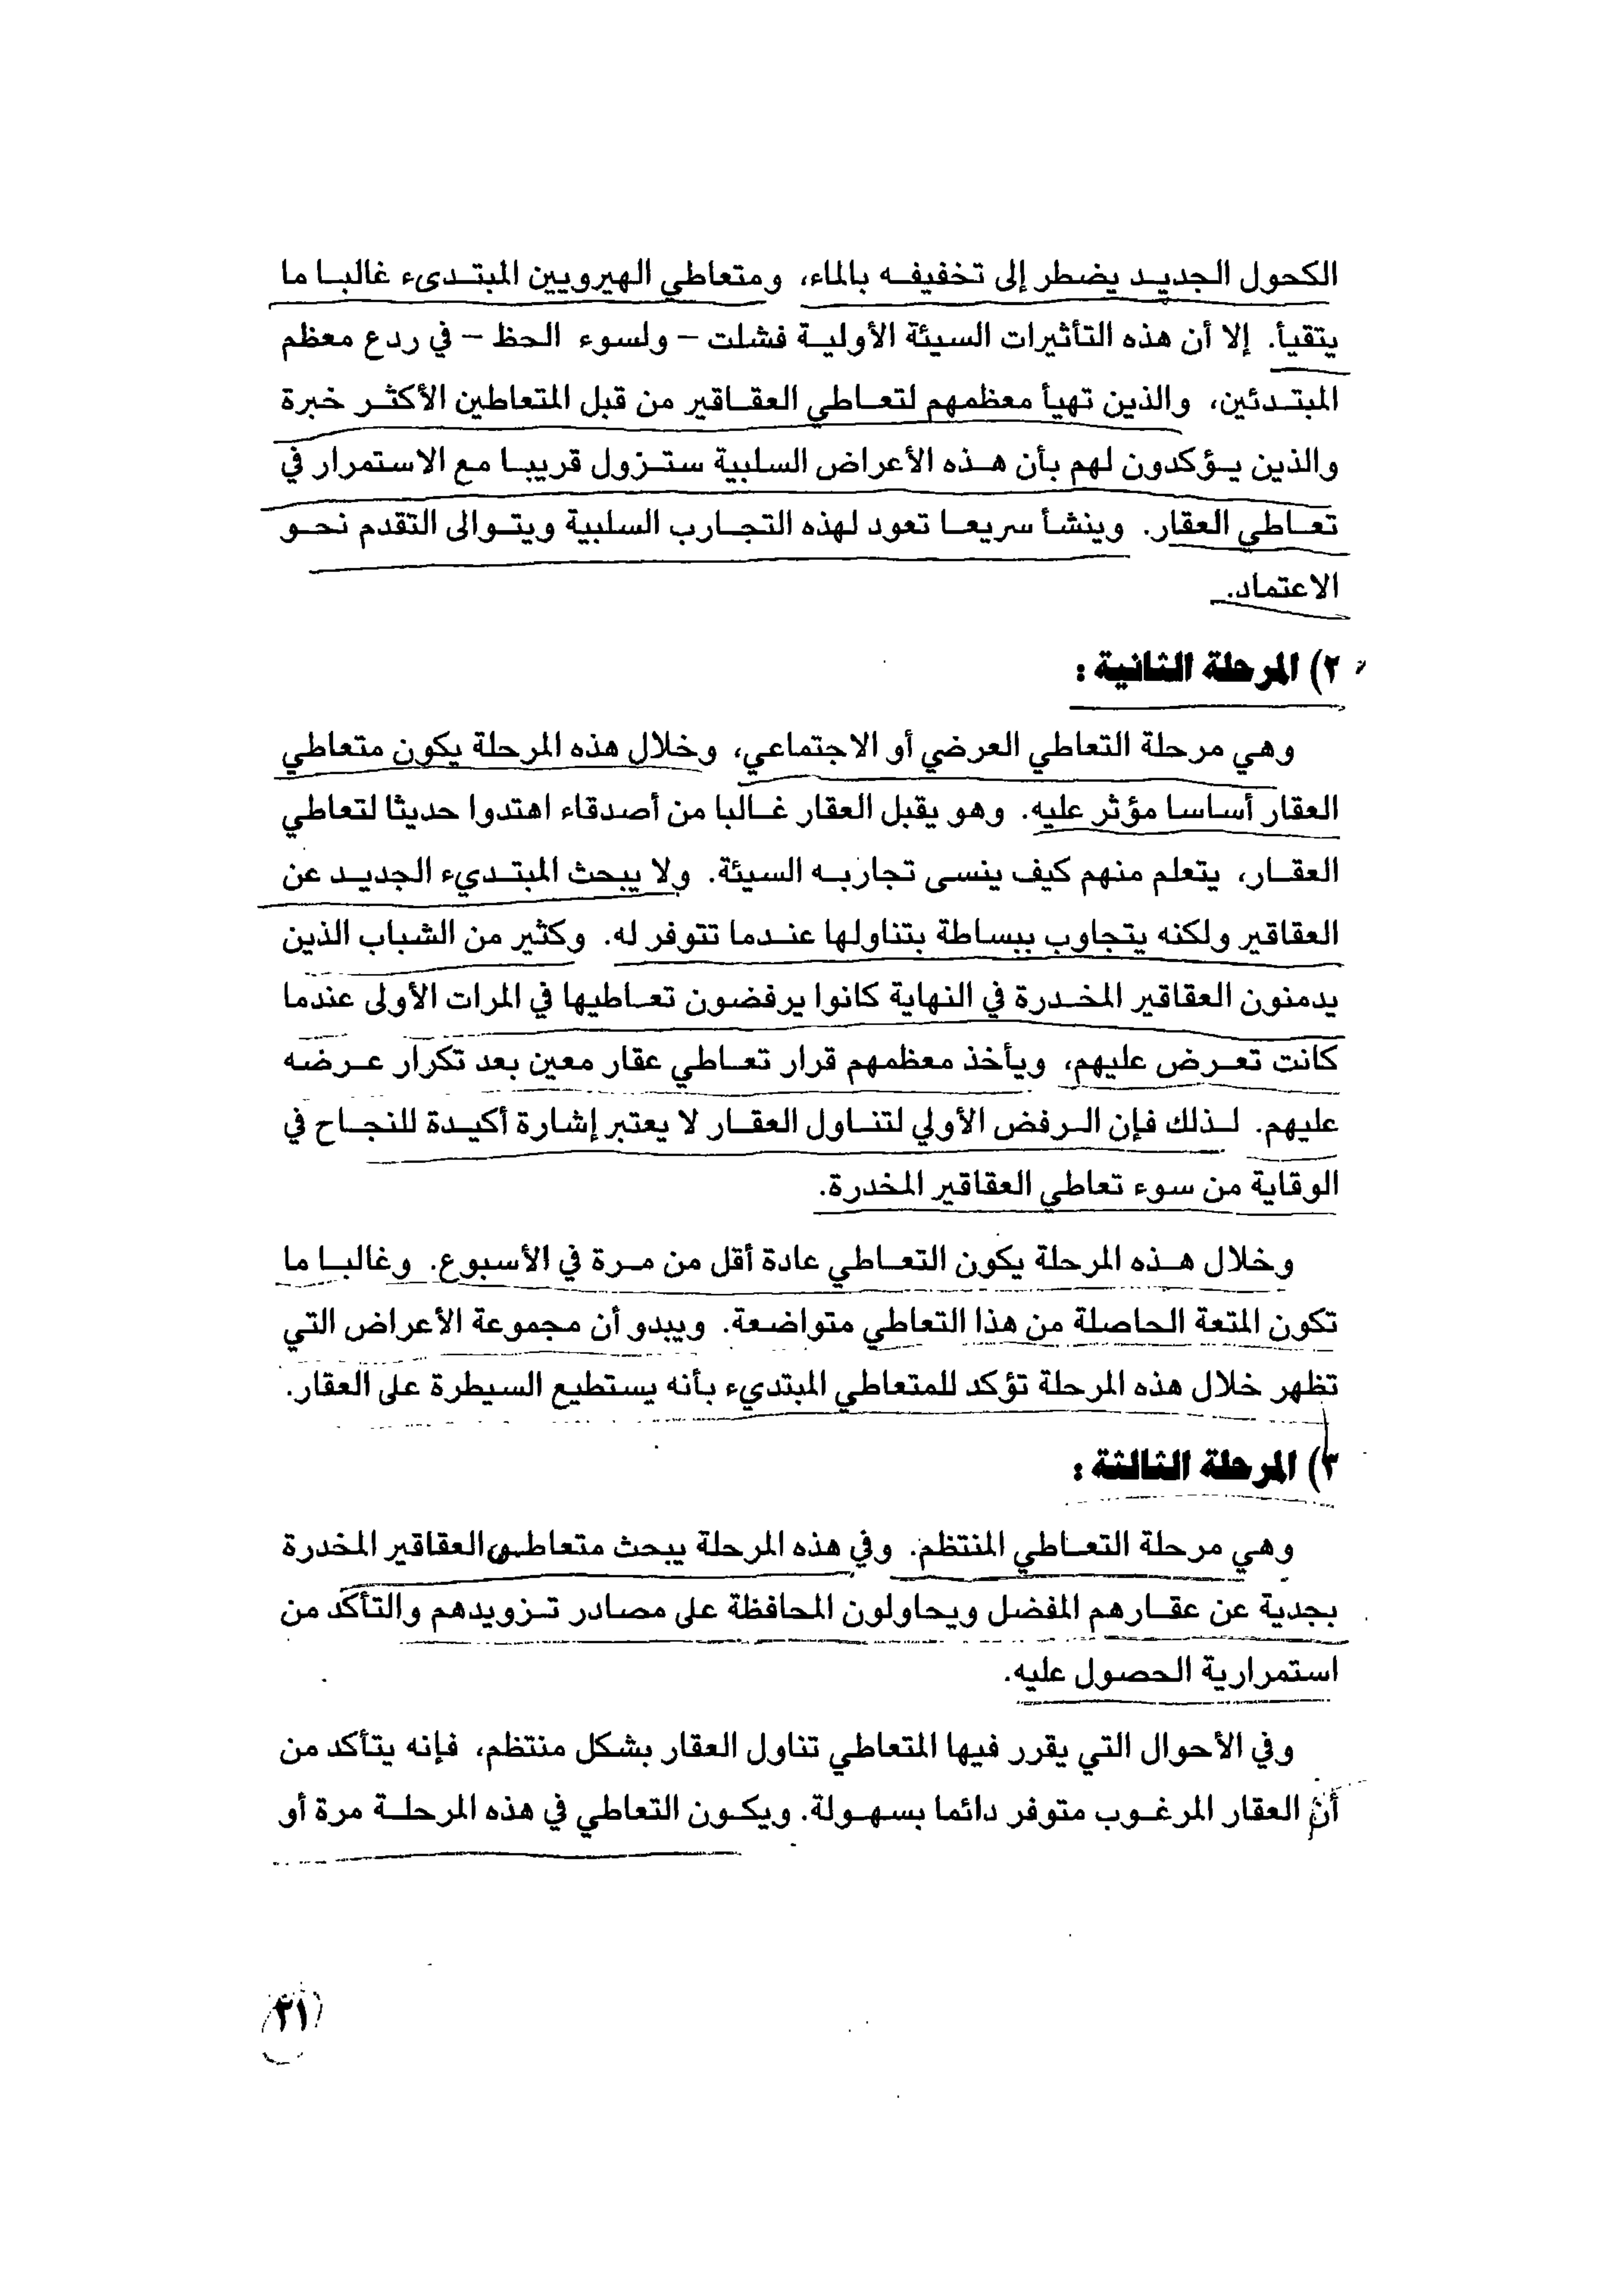 الكحول الجديد يضطر إلى تخفيفه بالماء، ومتعاطي الهيرويين المبتدىء غالبا ما
يتقيأ. إلا أن هذه التأثيرات السيئة الأولية فشلت – ولسوء الحظ – في ردع معظم
المبتدئين، والذين تهيأ معظمهم لتعاطي العقاقير من قبل المتعاطين الأكثر خبرة
والذين يؤكدون لهم بأن هذه الأعراض السلبية ستزول قريبا مع الاستمرار في
تعاطي العقار. وينشأ سريعا تعود لهذه التجارب السلبية ويتوالى التقدم نحو
الاعتماد.
٢) المرحلة الثانية :
وهي مرحلة التعاطي العرضي أو الاجتماعي، وخلال هذه المرحلة يكون متعاطي
العقار أساسا مؤثر عليه. وهو يقبل العقار غالبا من أصدقاء اهتدوا حديثا لتعاطي
العقار، يتعلم منهم كيف ينسى تجاربه السيئة. ولا يبحث المبتديء الجديد عن
العقاقير ولكنه يتجاوب ببساطة بتناولها عندما تتوفر له. وكثير من الشباب الذين
يدمنون العقاقير المخدرة في النهاية كانوا يرفضون تعاطيها في المرات الأولى عندما
كانت تعرض عليهم، ويأخذ معظمهم قرار تعاطي عقار معين بعد تكرار عرضه
عليهم. لذلك فإن الرفض الأولي لتناول العقار لا يعتبر إشارة أكيدة للنجاح في
الوقاية من سوء تعاطي العقاقير المخدرة.
وخلال هذه المرحلة يكون التعاطي عادة أقل من مرة في الأسبوع. وغالبا ما
تكون المتعة الحاصلة من هذا التعاطي متواضعة. ويبدو أن مجموعة الأعراض التي
تظهر خلال هذه المرحلة تؤكد للمتعاطي المبتديء بأنه يستطيع السيطرة على العقار.
٣) المرحلة الثالثة :
وهي مرحلة التعاطي المنتظم. وفي هذه المرحلة يبحث متعاطي العقاقير المخدرة
بجدية عن عقارهم المفضل ويحاولون المحافظة على مصادر تزويدهم والتأكد من
استمرارية الحصول عليه.
وفي الأحوال التي يقرر فيها المتعاطي تناول العقار بشكل منتظم، فإنه يتأكد من
أن العقار المرغوب متوفر دائما بسهولة. ويكون التعاطي في هذه المرحلة مرة أو
٢١